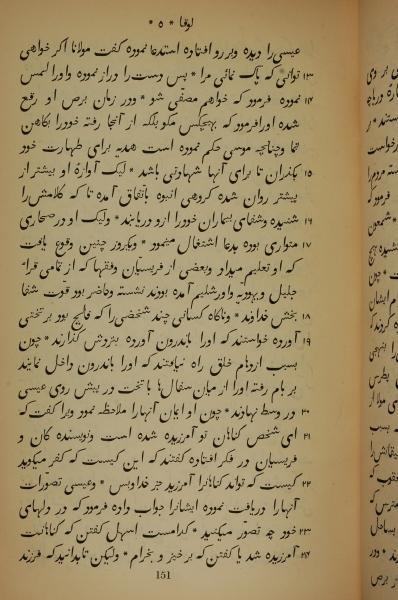 لوقا * ٥ *
عیسی را دیده وبر رو افتاده استدعا نموده کفت مولانا اکر خواهی
١٣ توانی که پاک نمائی مرا * پس دست را دراز نموده واورا لمس
١۴ نموده فرمود که خواهم مصفّی شو * ودر زمان برص او رفع
شده اورا فرمود که بهیچکس مکو بلکه از آنجا رفته خودرا بکاهن
نما وچنانچه موسی حکم نموده است هدیه برای طهارت خود
١٥ بکذران تا برای آنها شهادتی باشد * لیک آوازهٔ او بیشتر از
پیشتر روان شده کروهی انبوه باتّفاق آمده تا که کلامش را
١٦ شنیده وشفای بیماران خودرا ازو دریابند * ولیک او در صحاری
١٧ متواری بوده بدعا اشتغال مینمود * ویکروز چنین وقوع یافت
که او تعلیم میداد وبعضی از فریسیان وفقها که از تمامی قرای
جلیل ویهودیه واورشلیم آمده بودند نشسته وحاضر بود قوّت شفا
١٨ بخش خداوند * وناکاه کسانی چند شخصی را که فالج بود بر تختی
١٩ آورده خواستند که اورا باندرون آورده نزدش کذارند * چون
بسبب ازدحام خلق راه نیافتند که اورا باندرون داخل نمایند
بر بام رفته اورا از میان سفالها با تخت در پیش روی عیسی
٢٠ در وسط نهادند * چون او ایمان آنها را ملاحظه نمود ویرا کفت که
٢١ ای شخص کناهان تو آمرزیده شده است ونویسنده کان و
فریسیان در فکر افتاده کفتند که این کیست که کفر میکوید
٢٢ کیست که تواند کناهانرا آمرزید جز خدا وبس * وعیسی تصوّرات
آنهارا دریافت نموده ایشانرا جواب داده فرمود که در دلهای
٢٣ خود چه تصوّر میکنید * کدامست اسهل کفتن که کناهانت
٢۴ آمرزیده شد یا کفتن که بر خیز و بخرام * ولیکن تا بدانید که فرزند
151